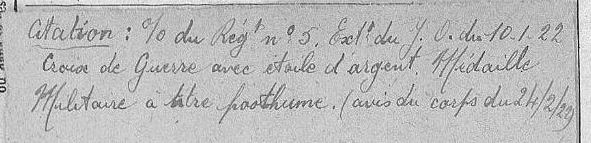 Citation : O/o du Régt n° 5. Extt du J. O. du 10.1.22
Croix de Guerre avec etoile d'argent. Médaille
Militaire à titre posthume. (avis du corps du 24/2/22)